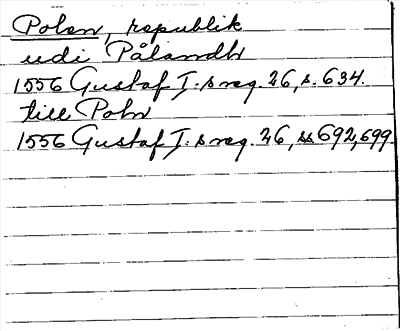 Polen, republik
udi Pålandh
1556 Gustaf I:s reg. 26, s. 634.
till Poln
1556 Gustaf I:s reg. 26, ss 692, 699.